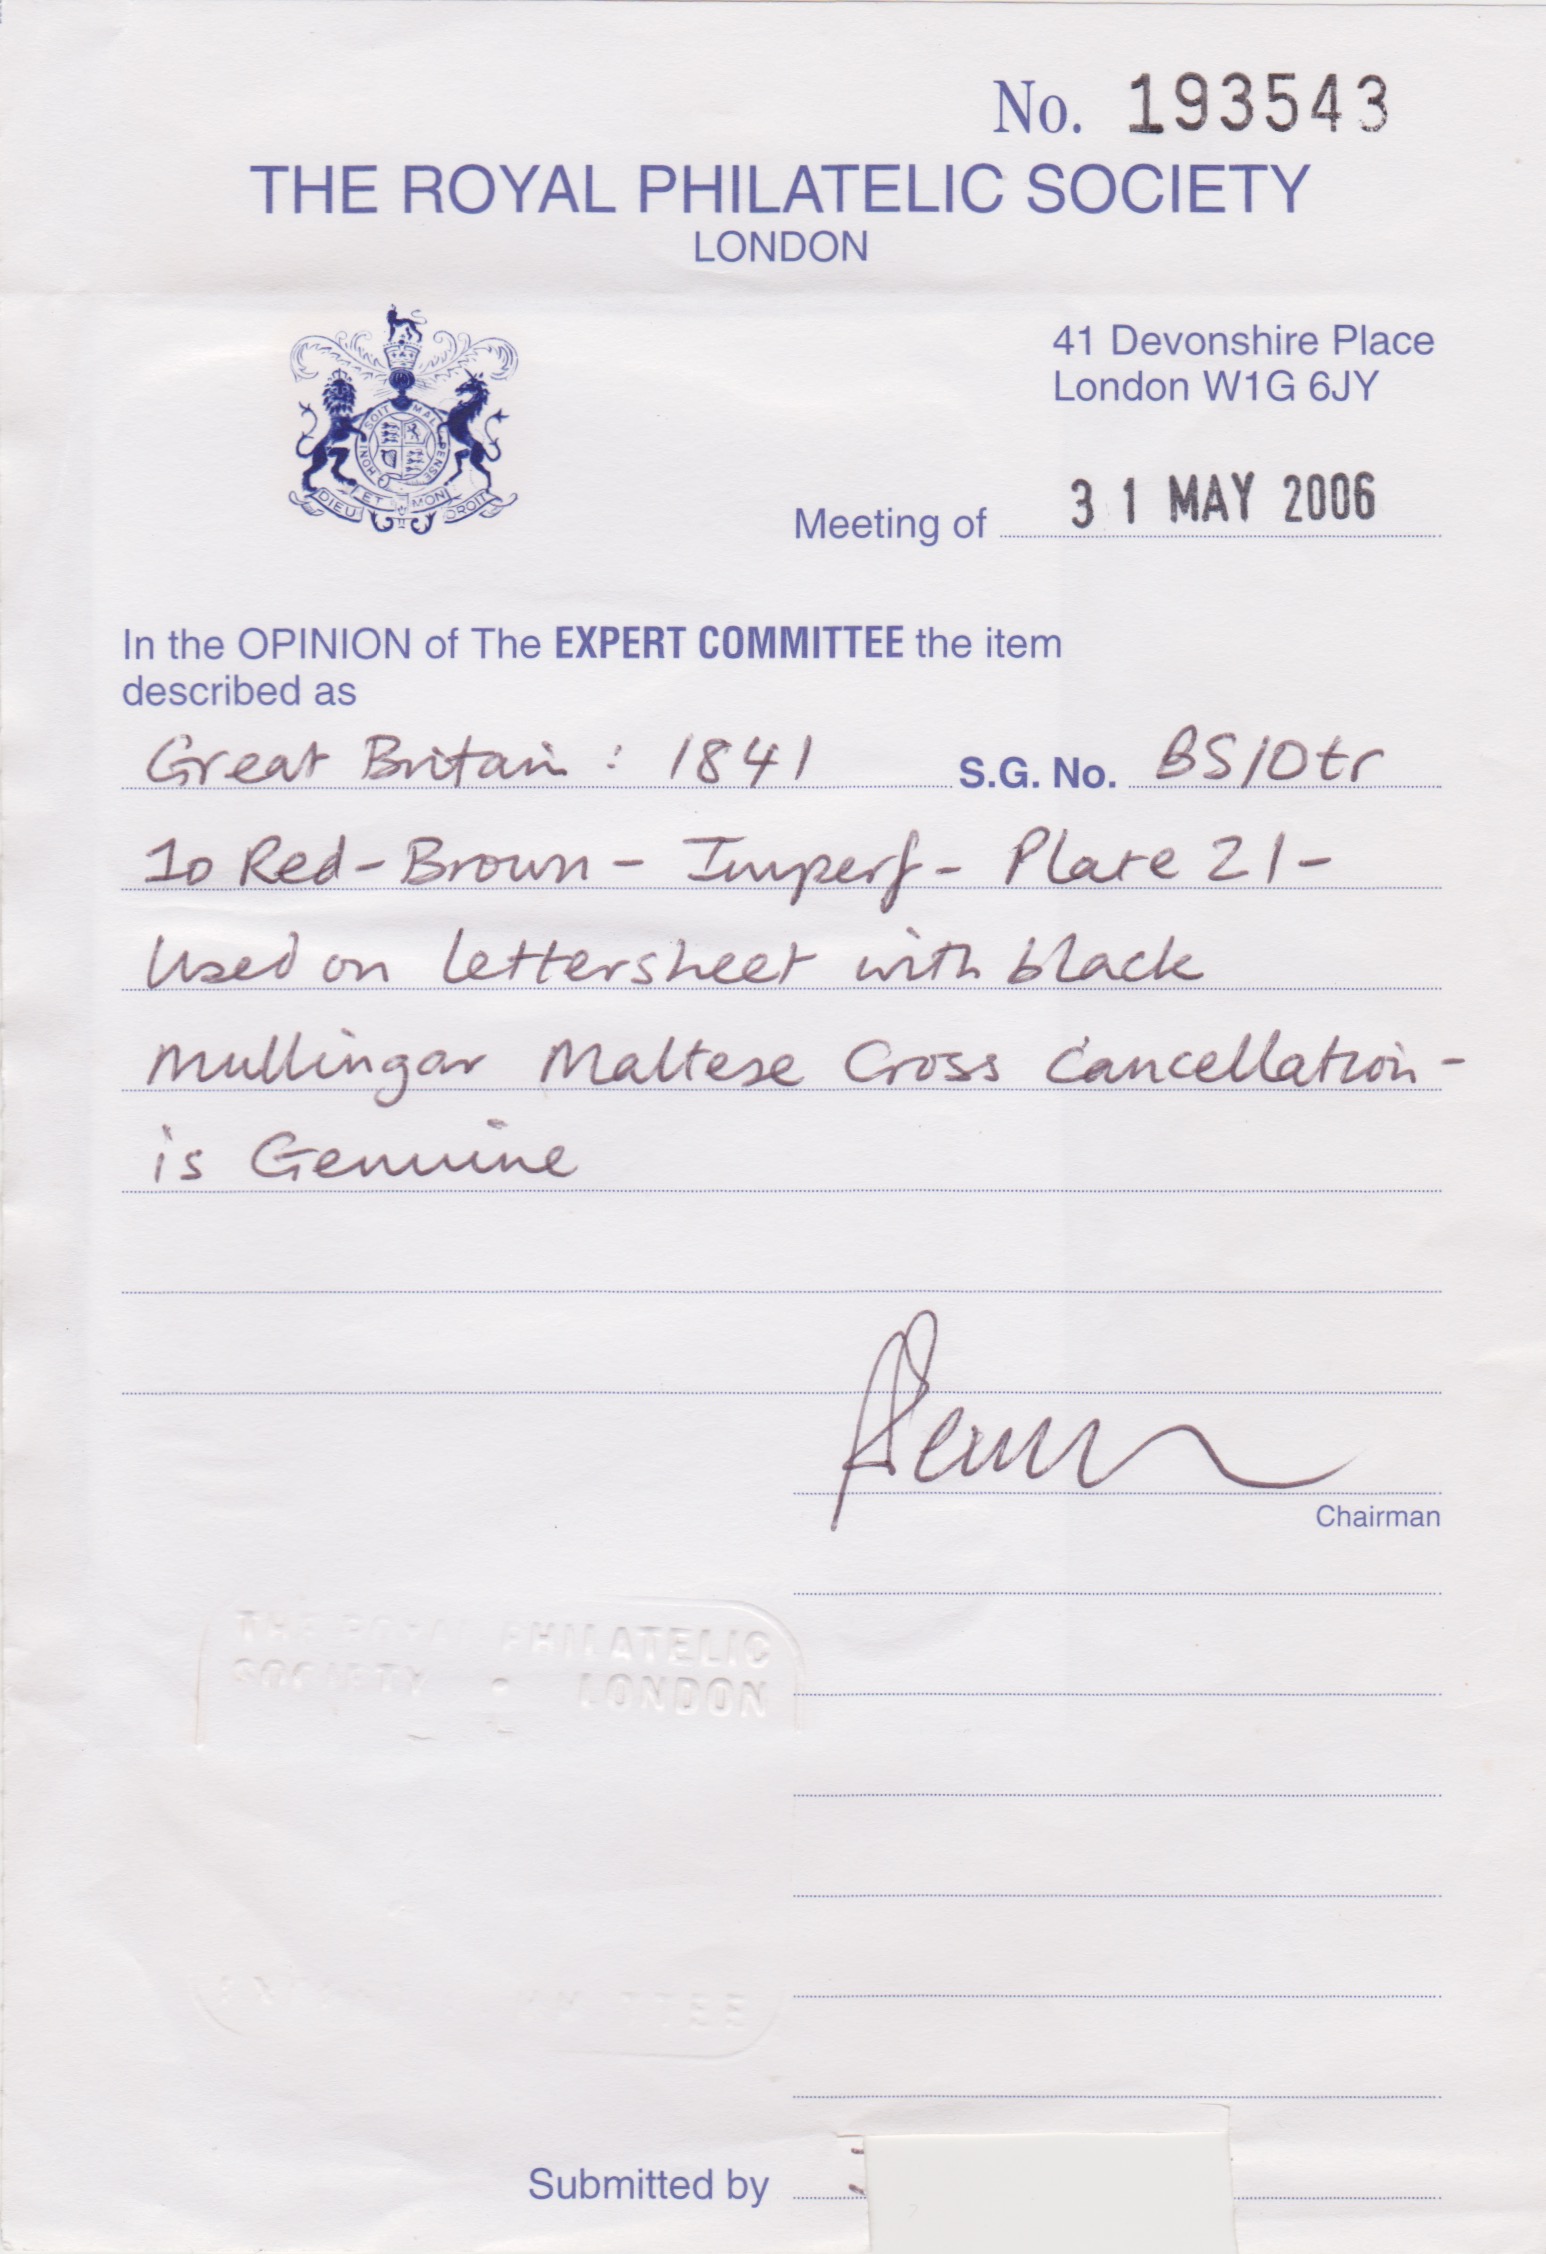 No. 193543
THE ROYAL PHILATELIC SOCIETY
LONDON
SOIT MAL PENSE
HONI
DIEU ET MON DROIT
41 Devonshire Place
London W1G 6JY
Meeting of 31 MAY 2006
In the OPINION of The EXPERT COMMITTEE the item
described as
Great Britain : 1841 S.G. No. BS10tr
1D Red-Brown - Imperf - Plate 21 -
Used on lettersheet with black
Mullingar Maltese Cross Cancellation -
is Genuine
Chairman
THE ROYAL PHILATELIC
SOCIETY • LONDON
Submitted by